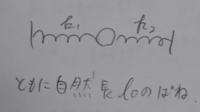 k₁ k₂
ともに自然長 l₀のばね.